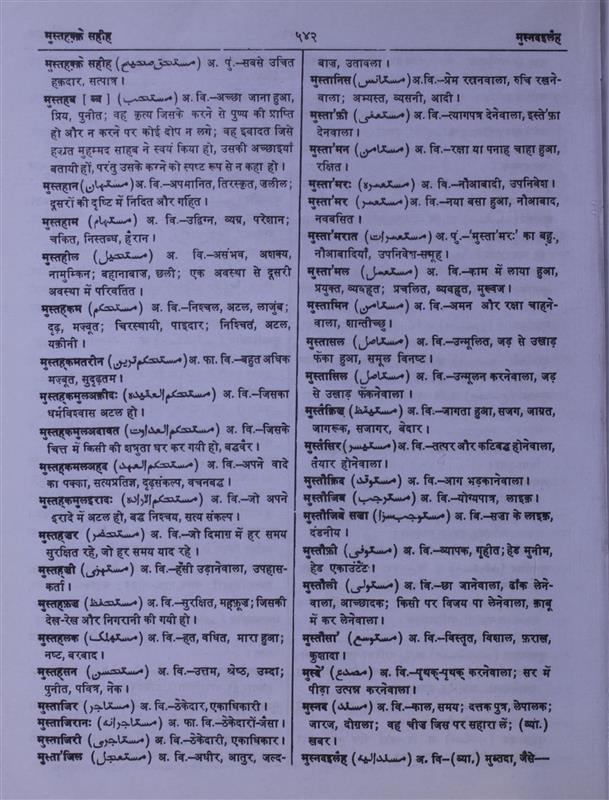 मुस्तहक़्क़े सहीह ५४२ मुस्नदइलैह
मुस्तहक़्क़े सहीह (مستحق صحیح) अ. पुं.–सबसे उचित
हक़दार, सत्पात्र ।
मुस्तहब [ ब्ब ] (مستحب) अ. वि.–अच्छा जाना हुआ,
प्रिय, पुनीत; वह कृत्य जिसके करने से पुण्य की प्राप्ति
हो और न करने पर कोई दोष न लगे; वह इबादत जिसे
हज़्रत मुहम्मद साहब ने स्वयं किया हो, उसकी अच्छाइयाँ
बतायी हों, परंतु उसके करने को स्पष्ट रूप से न कहा हो ।
मुस्तहान (مستہان) अ. वि.–अपमानित, तिरस्कृत, जलील;
दूसरों की दृष्टि में निंदित और गर्हित ।
मुस्तहाम (مستہام) अ. वि.–उद्विग्न, व्यग्र, परेशान;
चकित, निस्तब्ध, हैरान ।
मुस्तहील (مستحیل) अ. वि.–असंभव, अशक्य,
नामुम्किन; बहानाबाज़, छली; एक अवस्था से दूसरी
अवस्था में परिवर्तित ।
मुस्तहकम (مستحکم) अ. वि.–निश्चल, अटल, लाजुंब;
दृढ़, मज्बूत; चिरस्थायी, पाइदार; निश्चित, अटल,
यक़ीनी ।
मुस्तहकमतरीन (مستحکم ترین) अ. फा. वि.–बहुत अधिक
मज्बूत, सुदृढ़तम ।
मुस्तहकमुलअक़ीदः (مستحکم العقیدہ) अ. वि.–जिसका
धर्मविश्वास अटल हो ।
मुस्तहकमुलअदावत (مستحکم العداوت) अ. वि.–जिसके
चित्त में किसी की शत्रुता घर कर गयी हो, बद्धवैर ।
मुस्तहकमुलअहद (مستحکم العہد) अ. वि.–अपने वादे
का पक्का, सत्यप्रतिज्ञ, दृढ़संकल्प, वचनबद्ध ।
मुस्तहकमुलइरादः (مستحکم الارادہ) अ. वि.–जो अपने
इरादे में अटल हो, बद्ध निश्चय, सत्य संकल्प ।
मुस्तहज़र (مستحضر) अ. वि.–जो दिमाग़ में हर समय
सुरक्षित रहे, जो हर समय याद रहे ।
मुस्तहज़ी (مستہزی) अ. वि.–हँसी उड़ानेवाला, उपहास-
कर्ता ।
मुस्तहफ़ज़ (مستحفظ) अ. वि.–सुरक्षित, महफ़ूज़; जिसकी
देख-रेख और निगरानी की गयी हो ।
मुस्तहलक (مستہلک) अ. वि.–हत, वधित, मारा हुआ;
नष्ट, बरबाद ।
मुस्तहसन (مستحسن) अ. वि.–उत्तम, श्रेष्ठ, उम्दा;
पुनीत, पवित्र, नेक ।
मुस्ताजिर (مستاجر) अ. वि.–ठेकेदार, एकाधिकारी ।
मुस्ताजिरानः (مستاجرانہ) अ. फा. वि.–ठेकेदारों-जैसा ।
मुस्ताजिरी (مستاجری) अ. वि.–ठेकेदारी, एकाधिकार ।
मुस्ता'जिल (مستعجل) अ. वि.–अधीर, आतुर, जल्द-
बाज, उतावला ।
मुस्तानिस (مستانس) अ.वि.–प्रेम रखनेवाला, रुचि रखने-
वाला; अभ्यस्त, व्यसनी, आदी ।
मुस्ता'फ़ी (مستعفی) अ. वि.–त्यागपत्र देनेवाला, इस्ते'फ़ा
देनेवाला ।
मुस्ता'मन (مستامن) अ. वि.–रक्षा या पनाह चाहा हुआ,
रक्षित ।
मुस्ता'मरः (مستعمرہ) अ. वि.–नौआबादी, उपनिवेश ।
मुस्ता'मर (مستعمر) अ. वि.–नया बसा हुआ, नौआबाद,
नवबसित ।
मुस्ता'मरात (مستعمرات) अ. पुं.–'मुस्ता'मरः' का बहु.,
नौआबादियाँ, उपनिवेश-समूह ।
मुस्ता'मल (مستعمل) अ. वि.–काम में लाया हुआ,
प्रयुक्त, व्यवहृत; प्रचलित, व्यवहृत, मुरव्वज ।
मुस्तामिन (مستامن) अ. वि.–अमन और रक्षा चाहने-
वाला, शान्तीच्छु ।
मुस्तासल (مستاصل) अ. वि.–उन्मूलित, जड़ से उखाड़
फेंका हुआ, समूल विनष्ट ।
मुस्तासिल (مستاصل) अ. वि.–उन्मूलन करनेवाला, जड़
से उखाड़ फेंकनेवाला ।
मुस्तैक़िज़ (مستیقظ) अ. वि.–जागता हुआ, सजग, जाग्रत,
जागरूक, सजागर, बेदार ।
मुस्तैसिर (مستیسر) अ. वि.–तत्पर और कटिबद्ध होनेवाला,
तैयार होनेवाला ।
मुस्तौक़िद (مستوقد) अ. वि.–आग भड़कानेवाला ।
मुस्तौजिब (مستوجب) अ. वि.–योग्यपात्र, लाइक़ ।
मुस्तौजिबे सज़ा (مستوجب سزا) अ. वि.–सज़ा के लाइक़,
दंडनीय ।
मुस्तौफ़ी (مستوفی) अ. वि.–व्यापक, गृहीत; हेड मुनीम,
हेड एकाउंटेंट ।
मुस्तौली (مستولی) अ. वि.–छा जानेवाला, ढाँक लेने-
वाला, आच्छादक; किसी पर विजय पा लेनेवाला, क़ाबू
में कर लेनेवाला ।
मुस्तौसा' (مستوسع) अ. वि.–विस्तृत, विशाल, फ़राख़,
कुशादा ।
मुस्दे' (مصدع) अ. वि.–पृथक्-पृथक् करनेवाला; सर में
पीड़ा उत्पन्न करनेवाला ।
मुस्नद (مسند) अ. वि.–काल, समय; दत्तक पुत्र, लेपालक;
जारज, दोग़ला; वह चीज़ जिस पर सहारा लें; (व्या.)
ख़बर ।
मुस्नदइलैह (مسندالیہ) अ. वि–(व्या.) मुब्तदा, जैसे—